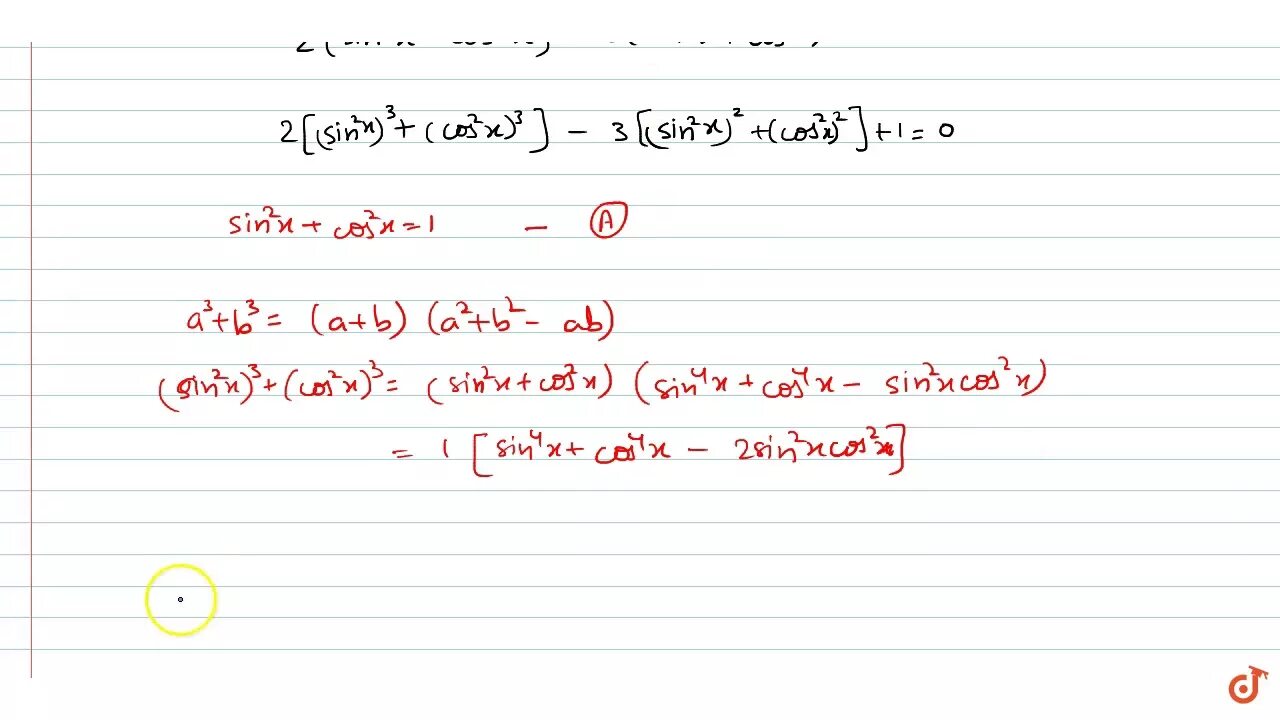 2[(sin²x)³+(cos²x)³] - 3[(sin²x)²+(cos²x)²]+1=0
sin²x + cos²x = 1 - Ⓐ
a³+b³ = (a+b) (a²+b² - ab)
(sin²x)³+(cos²x)³ = (sin²x+cos²x) (sin⁴x + cos⁴x - sin²xcos²x)
= 1 [sin⁴x + cos⁴x - 2sin²xcos²x]